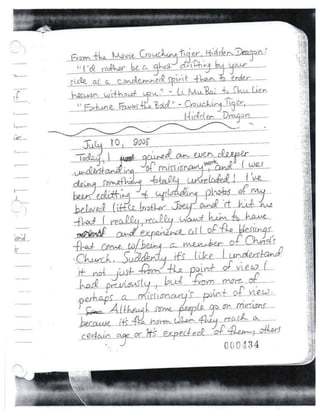 From the Movie Crouching Tiger, Hidden Dragon:
"I'd rather be a ghost drifting by your
side as a condemned spirit than to enter
heaven without you." - Li Mu Bai to Shu Lien
"Fortune Favors the Bold" - Crouching Tiger,
Hidden Dragon
July 10, 2005
Today, I gained an even deeper
understanding of missionary work and I was
doing something totally unrelated! I've
been editting & uploading photos of my
beloved little brother Joey and it hit me
that I really, really want him to have
and experience all of the blessings
that come w/being a member of Christ's
Church. Suddenly it's like I understand
it not just from the point of view I
had previously, but from more of
perhaps a missionary's point of view.
Although some people go on missions
because it's the norm when they reach a
certain age or it's expected of them, others
000434